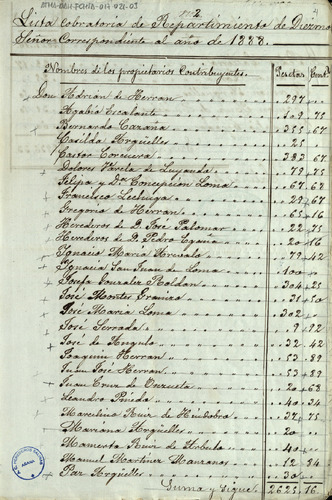 MHA-DAI-FCMA-017-021-03
nº 2
Lista Cobratoria de Repartimiento de Diezmo
Señor Correspondiente al año de 1888.
Nombres de los propietarios Contribuyentes. Pesetas Cent.
Don Adrian de Herran 297
Agabio Escalante 109 75
Bernardo Carana 355 67
Casilda Argüelles 25
Castor Corcuera 383 67
Dolores Varela de Luyando 79 75
Felipa y Dª Concepcion Loma 67 62
Francisco Lechuga 29 67
Gregorio de Herran 65 16
Herederos de D. José Palomar 22 75
Herederos de D. Pedro Egaña 20 16
Ignacio Maria 79 42
Ignacia San Juan de Loma 100
Josefa Gonzalez Roldan 304 25
José Montes 31 50
José Maria Loma 302
José Serrada 9 92
José de Angulo 32 42
Joaquin Herran 53 89
Juan José Herran 53 89
Juan Cruz de Unzueta 20 68
Leandro Pineda 40 34
Marcelino Ruiz de 37 75
Mariana Argüelles 20
Mamerta Ruiz de 40
Manuel Martinez Manzanos 12 34
Paz Argüelles 30
Suma y sigue 2625 16